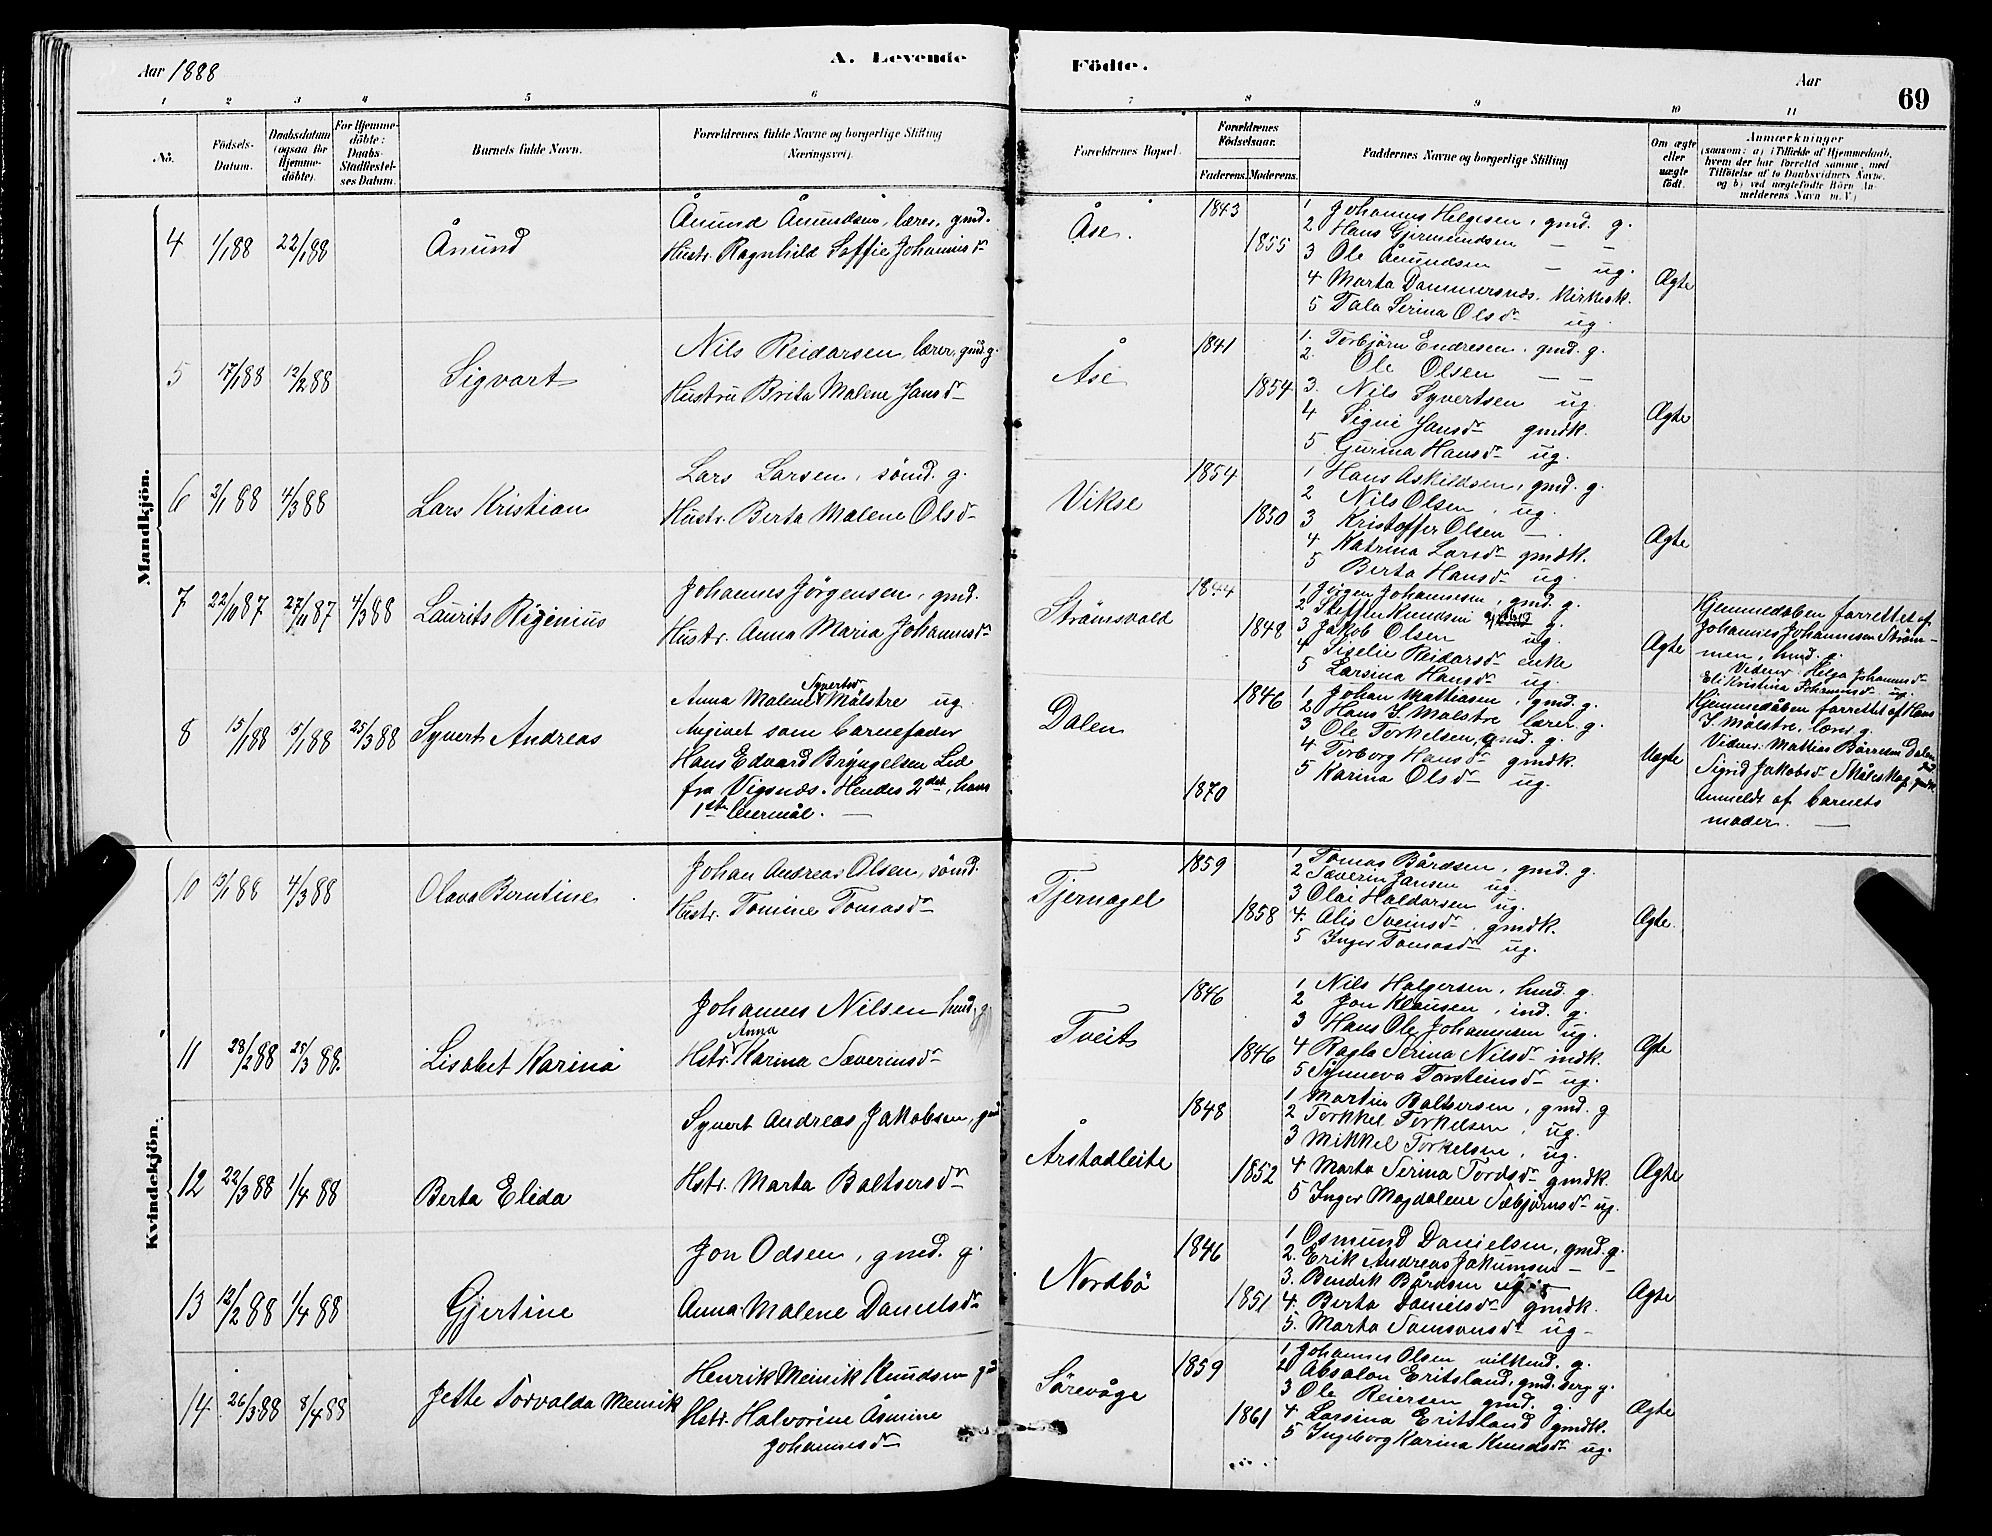 Aar 1888
A. Levende
Födte.
Aar
69
1 2 3 4 5 6 7 8 9 10 11
No.
Födsels-
Datum.
Daabsdatum
(ogsaa for
Hjemme-
döbte).
For Hjemme-
döbte:
Daabs-
Stadfæstel-
ses Datum.
Barnets fulde Navn.
Forældrenes fulde Navne og borgerlige Stilling
Næringsvei.
Forældrenes Bopæl.
Forældrenes
Födselsaar.
Faderens. Moderens.
Faddernes Navne og borgerlige Stilling
Om ægte
eller
uægte
födt.
Anmærkninger
(saasom: a) i Tilfælde af Hjemmedaab,
hvem der har forrettet samme, med
Tilföielse af to Daabsvidners Navne,
og b) ved uægtefödte Börn An-
melderens Navn m. V.)
Mandkjön.
4 1/1 88 22/1 88
Ånund
Ånund Ånundsen, lærer, gmd.
Hustr. Ragnhild Soffie Johannisdr
Åse.
1843
1855
1 Johannes Helgesen, gmd. g.
2 Hans Gjermundsen — —
3 Ole Ånundsen — ug.
4 Marta Dommersnæs. Kirkesk.
5 Tala Serina Olsdr ug.
Ægte
5 17/1 88 12/2 88
Sigvart
Nils Reidarsen, lærer, gmd. g.
Hustru Brita Malene Jansdr
Åse
1841
1854
1. Torbjörn Endresen, gmd. g.
2. Ole Olsen — —
3. Nils Syvertsen ug.
4 Signi Jansdr gmdk.
5. Gjurina Hansdr ug.
Ægte
6 3/1 88 4/3 88
Lars Kristian
Lars Larsen, sömd. g.
Hustr. Berta Malene Olsdr
Vikse
1854
1850
1 Hans Askildsen, gmd. g.
2 Nils Olsen, ug.
3 Kristoffer Olsen —.
4 Katrina Larsdr gmdk.
5 Berta Hansdr ug.
Ægte
7 22/10 87 27/11 87 4/3 88
Laurits Riginius
Johannes Jörgensen, gmd.
Hustr. Anna Maria Johannsdr
Strömsvold
1844
1848
1 Jörgen Johannesen, gmd. g.
2 Steffen Knudsen g.
3 Jakob Olsen ug.
4 Siselie Reidarsdr enke
5 Larsina Hansdr ug.
Ægte
Hjemmedåben forrettet af
Johannes Johannesen Ström-
men, hmd. g.
Vidner: Helga Johannesdr
Eli Kristina Johannesdr ug.
8 15/1 88 15/1 88 25/3 88
Syvert Andreas
Anna Malene Syvertsdr Målstre ug.
Angivet som barnefader
Hans Edvard Bryngelsen Lie
fra Vigsnæs. Hendes 2det, hans
1ste leiermål. —
Dalen
1846
1870
1 Johan Mattiasen, gmd. g.
2 Hans S. Målstre lærer g.
3 Ole Torkelsen, gmd. g.
4 Torborg Hansdr gmdk.
5 Karina Olsdr ug.
Uægte
Hjemmedåben forrettet af Hans
S. Målstre, lærer g.
Vidner: Mattias Börresen Dalen
Sigrid Jakobsdr Skåleskog gmdk.
Anmeldt af barnets
moder. —
Kvindekjön.
10 13/1 88 4/3 88
Olava Berntine
Johan Andreas Olsen, sömd.
Hustr. Tomine Tomasdr
Tjernagel
1859
1858
1 Tomas Bårdsen, gmd. g.
2 Sæverin Jansen ug.
3 Olai Haldorsen ug.
4. Alis Sveinsdr, gmdk.
5 Inger Tomasdr ug.
Ægte.
11 28/2 88 25/3 88.
Lisabet Karina
Johannes Nilsen hmd. g.
Hstr. Anna Karina Sæverinsdr
Tveit
1846
1846
1 Nils Holgersen, hmd. g.
2 Jon Klausen, ind. g.
3 Hans Ole Johannesen ug.
4 Ragla Serina Nilsdr indk.
5 Synneva Torsteinsdr ug.
Ægte
12 22/3 88 1/4 88
Berta Elida
Syvert Andreas Jakobsen, gmd
Hstr. Marta Baltsersdr
Årstadleite
1848
1852
1 Martin Baltsersen, gmd. g
2 Torkkel Torkelsen, ug.
3 Mikkel Torkelsen, ug.
4 Marta Serina Tordsdr gmdk.
5 Inger Magdalene Sæbjörnsdr ug.
Ægte
13 12/2 88 1/4 88
Gjertine
Jon Odsen, gmd. g.
Anna Malene Danielsdr
Nordbö
1846
1851
1 Osmund Danielsen, gmd. g.
2. Erik Andreas Jakumsen — —
3. Bendik Bårdsen ug.
4. Berta Danielsdr gmdk.
5. Marta Samsonsdr ug-
Ægte
14 26/3 88 8/4 88
Jette Torvalda Meinik
Henrik Meinik Knudsen gd
Hstr. Halvorine Åsmine
Johannesdr
Sörevåge
1859
1861
1 Johannes Olsen g.
2 Absalon Eritsland, gmd. g.
3 Ole Reiersen gmd. g.
4 Larsina Eritsland gmdk.
5 Ingeborg Karina Knudsdr ug.
Ægte